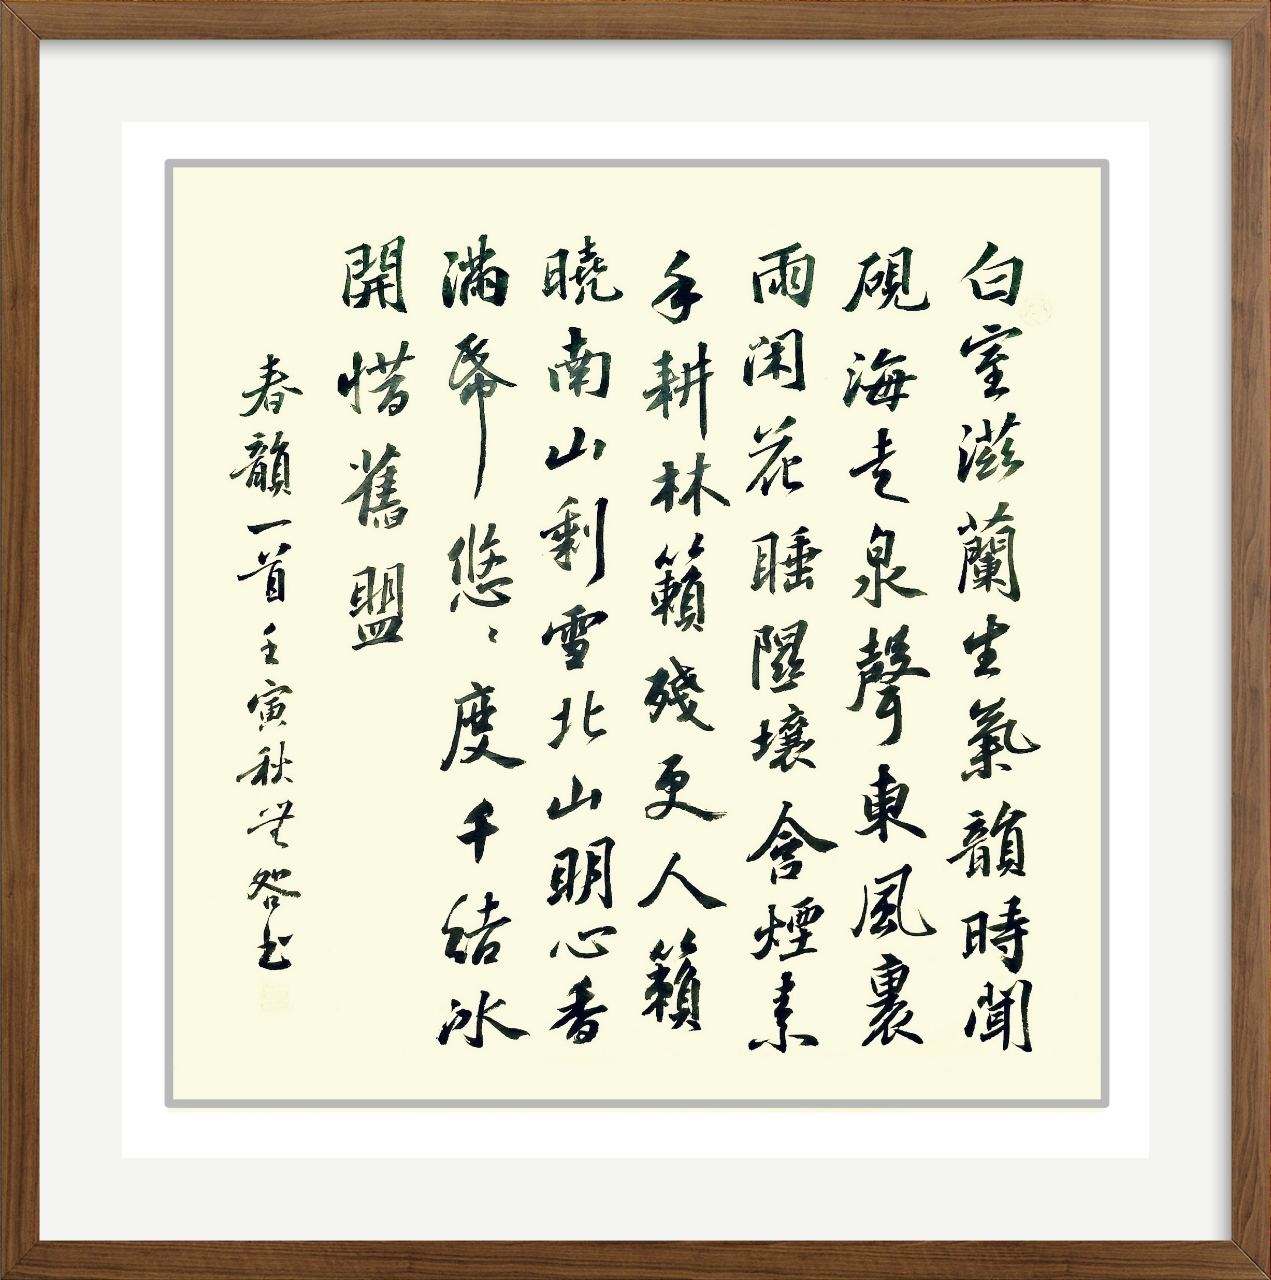 白室滋蘭生氣韻時聞
硯海走泉聲東風裏
雨闲花睡隰壤含煙素
手耕林籟殘更人籟
曉南山剩雪北山明心香
滿帋悠〻度千結冰
開惜舊盟
春韻一首壬寅秋